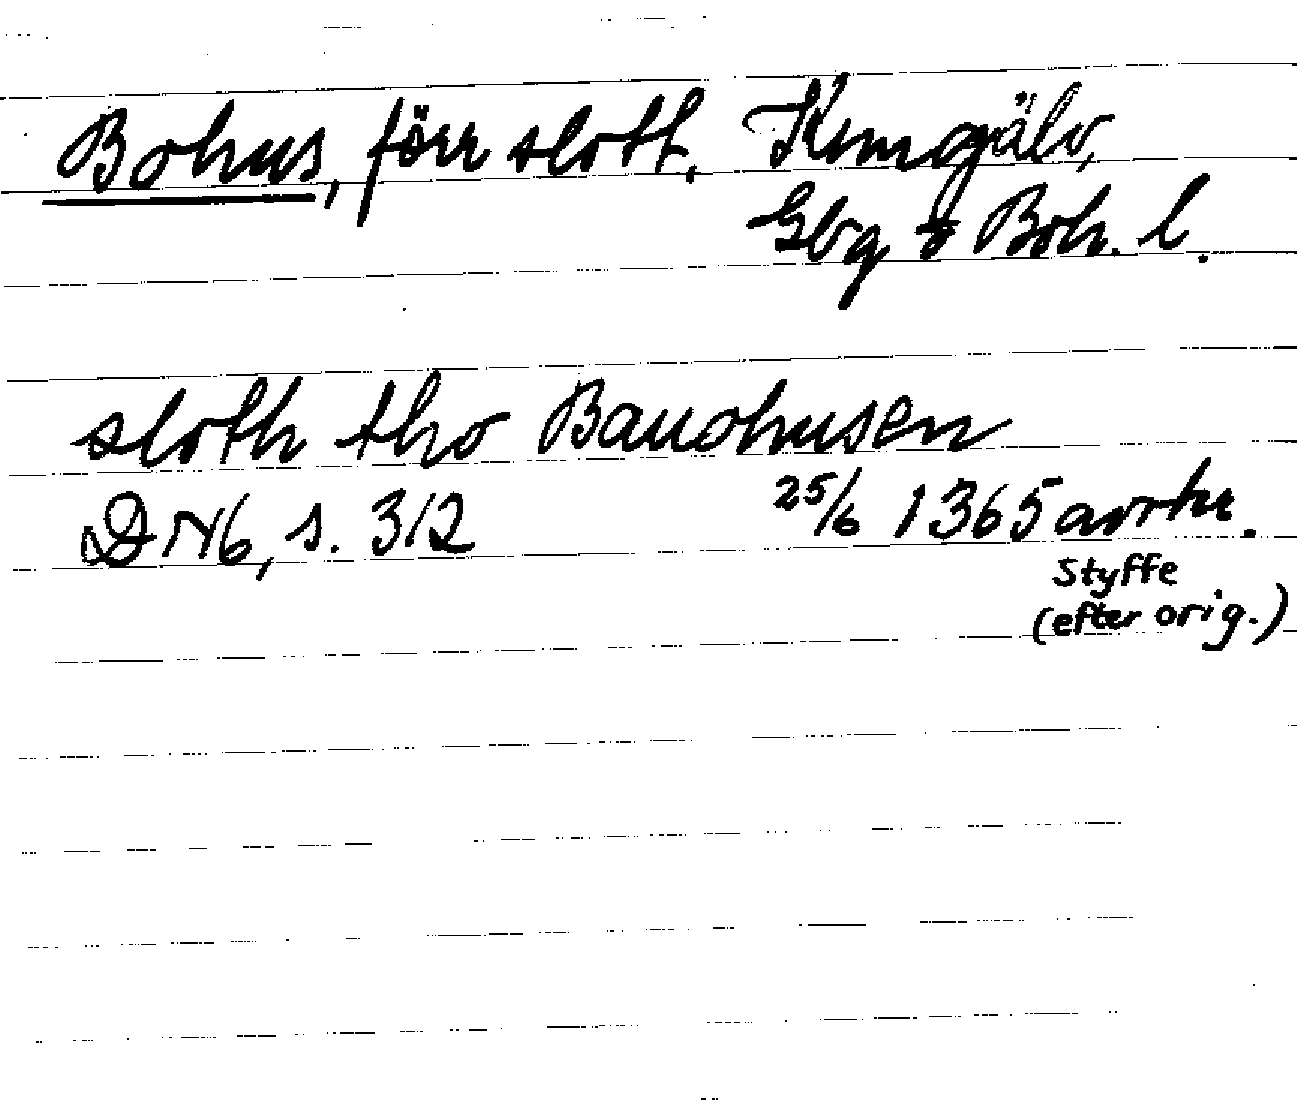 Bohus, förr slott, Kungälv,
Gbg o Boh. l.
sloth tho Bauohusen
DN 6, s. 312 25/6 1365 avskr.
Styffe
(efter orig.)